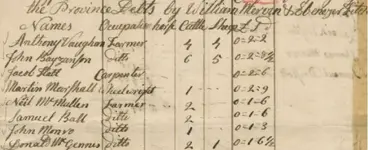 the Province Debts by William Mervin & Ebenezer Fitch
Names Occupation horse Cattle Sheep £ D
Anthony Vaughan Farmer 4 4 0=2=2
John Bayganson Ditto 6 5 0=2=3½
Jacob Hatt Carpenter 0=2=6
Martin Marshall Wheelwright 1 0=2=9
Neil McMullen Farmer 2 0=1=6
Samuel Ball Ditto 2 0=1=6
John Monro Ditto 1 0=1=3
Donald McGennis Ditto 2 1 0=1=6½